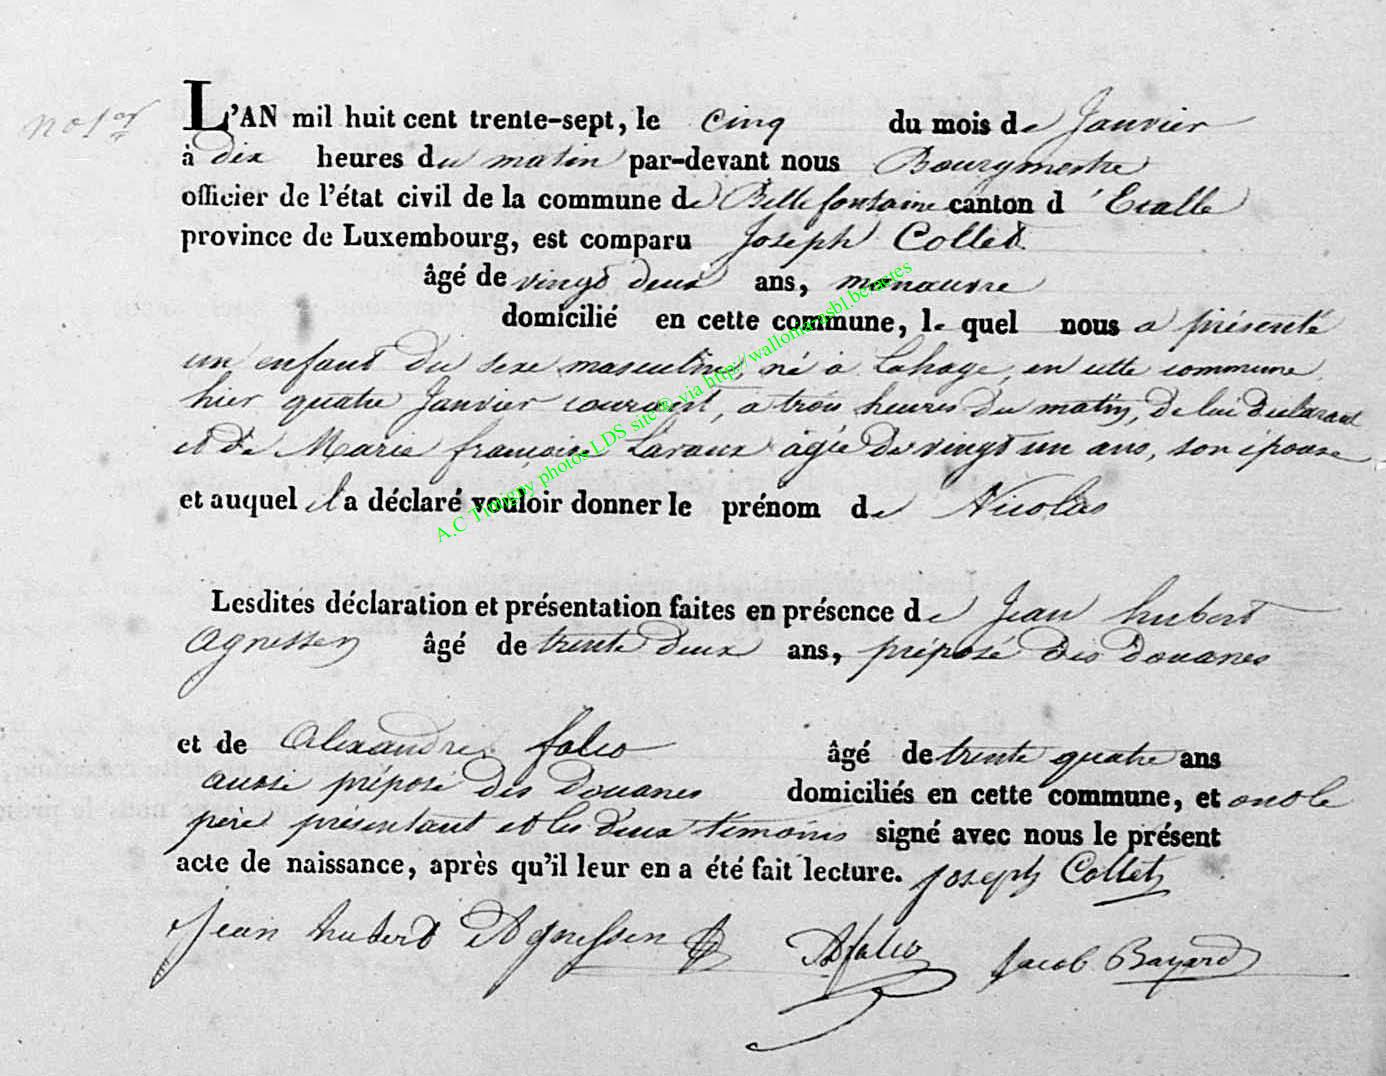 no 1er
L'AN mil huit cent trente-sept, le cinq du mois de Janvier
à dix heures du matin par-devant nous Bourgmestre
officier de l'état civil de la commune de Bellefontaine canton d'Etalle
province de Luxembourg, est comparu Joseph Collet
âgé de vingt deux ans, manœuvre
domicilié en cette commune, lequel nous a présenté
un enfant du sexe masculin, né à Lahage, en cette commune,
hier quatre Janvier courant, a trois heures du matin, de lui déclarant
et de Marie françoise Lavaux âgée de vingt un ans, son épouse
et auquel il a déclaré vouloir donner le prénom de Nicolas
Lesdites déclaration et présentation faites en présence de Jean hubert
Agnessen âgé de trente deux ans, préposé des Douanes
et de Alexandre falio âgé de trente quatre ans
aussi préposé des Douanes domiciliés en cette commune, et ont le
père présentant et les deux témoins signé avec nous le présent
acte de naissance, après qu'il leur en a été fait lecture. Joseph Collet
Jean hubert Agnessen A falio Jacob Bayard
A.C Tintigny photos LDS site® via http://wallonia.asbl.be/actes